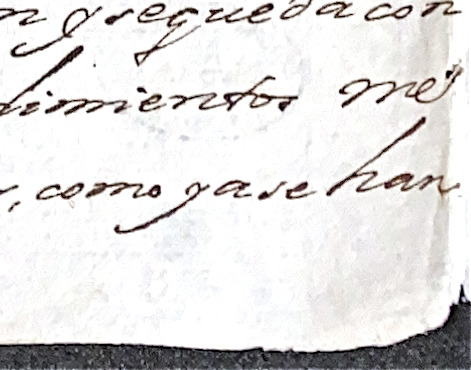 n y se queda con
dimientos me
, como ya se han